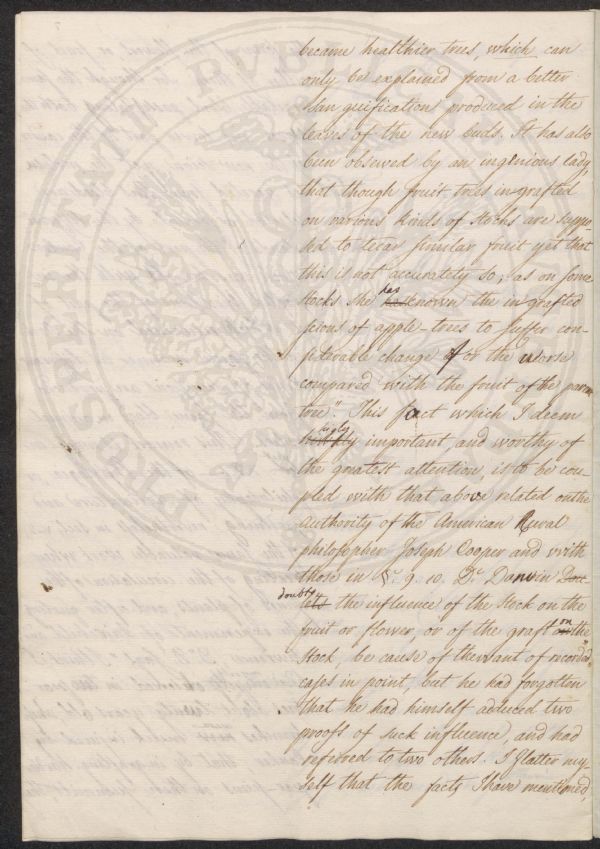 became healthier trees, which can
only be explained from a better
sanguification produced in the
leaves of the new buds. It has also
been observed by an inginious lady,
that though fruit-trees in-grafted
on various kinds of stocks are suppo-
sed to bear similar fruit yet that
this is not accurately so; as on some
stocks she has known the in-grafted
scions of apple-trees to suffer con-
siderable change for the worse
compared with the fruit of the parent
tree". This fact which I deem
higly important and worthy of
the greatest attention, is to be cou-
pled with that above related on the
authority of the American Rural
philosopher Joseph Cooper and with
those in §. 9. 10. Dr. Darwin
doubts the influence of the Stock on the
fruit or flower, or of the graft on the
Stock, be cause of the want of recorded
cases in point, but he had forgotten
that he had himself adduced two
proofs of such influence, and had
referred to two others. I flatter my-
self that the facts I have mentioned,
PROSPERITATI PUBLICAE